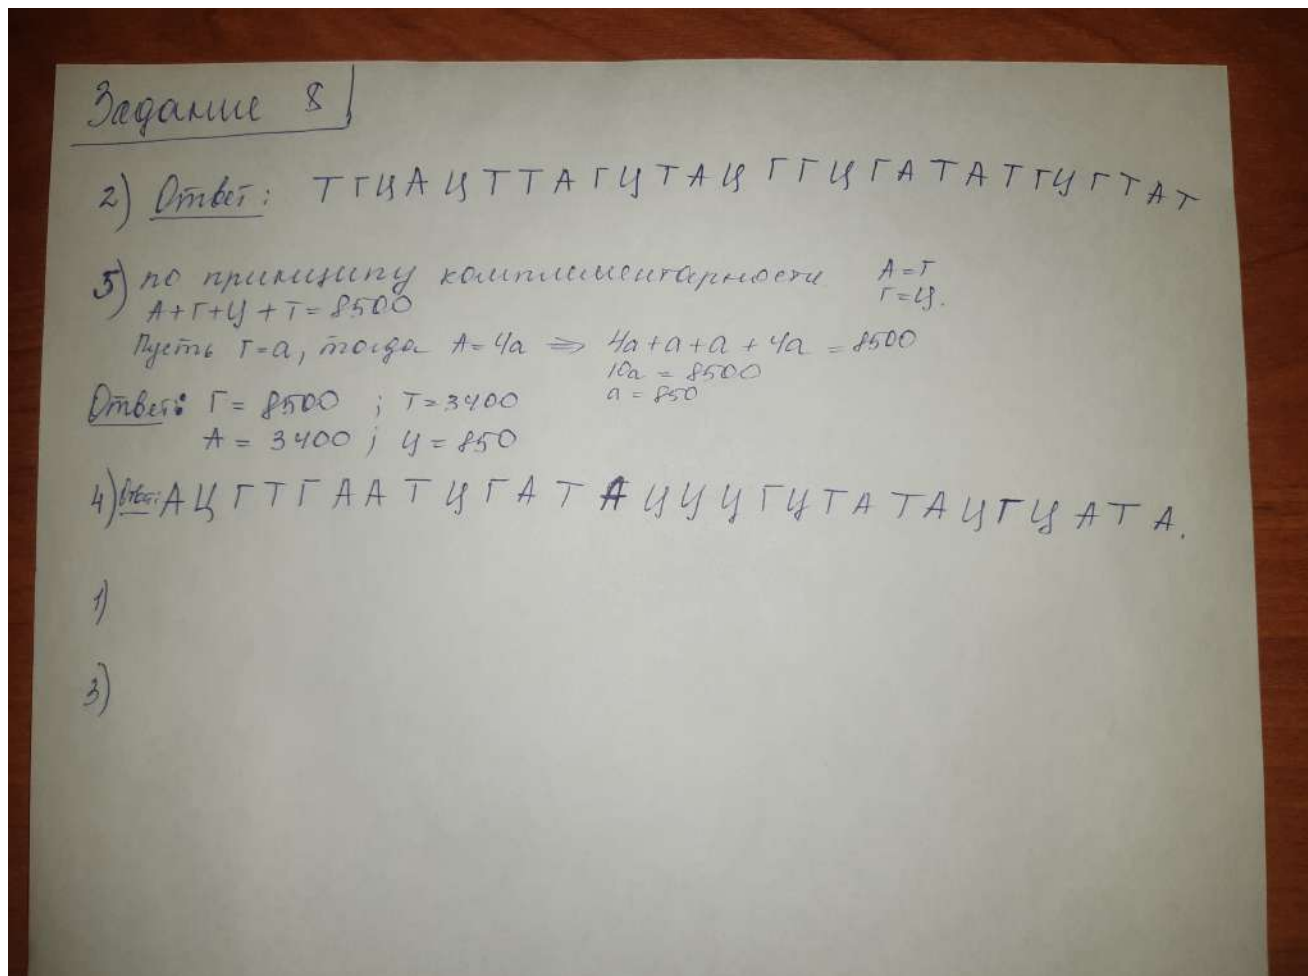 Задание 8
2) Ответ: Т Г Ц А Ц Т Т А Г Ц Т А Ц Г Г Ц Г А Т А Т Г Ц Г Т А Т
5) по принципу комплиментарности А=Т
Г=Ц.
А+Г+Ц+Т=8500
Пусть Г=а, тогда А=4а => 4а+а+а+4а=8500
10а=8500
а=850
Ответ: Г=8500 ; Т=3400
А=3400 ; Ц=850
4) Ответ: А Ц Г Т Г А А Т Ц Г А Т А Ц Ц Ц Г Ц Т А Т А Ц Г Ц А Т А.
1)
3)